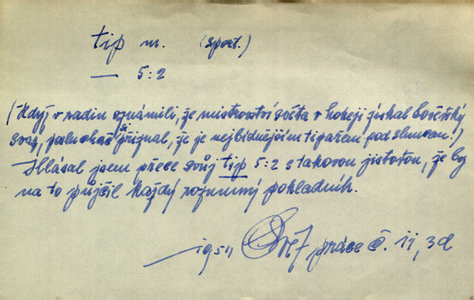 tip m. (sport.)
— 5:2
(Když v radiu oznámili, že mistrovství světa v hokeji získal Sovětský
svaz, posluchač přiznal, že je nejbídnějším tipařem pod sluncem!)
Hlásal jsem přece svůj tip 5:2 s takovou jistotou, že by
na to půjčil každý rozumný pokladník.
1954 Svět práce č. 11, 3d